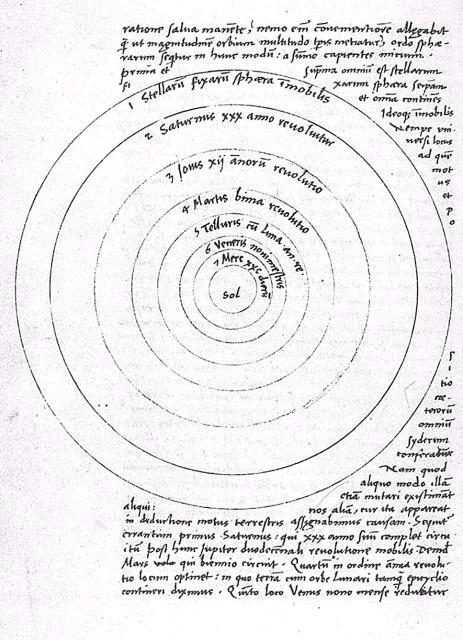 ratione salua manēte, nemo em̄ convenientiorē allegabit
q̄ ut magnitudinē orbium multitudo tp̄is metiatur, ordo sphæ-
rarum seq̄tur in hunc modū: a sūmo capientes initium.
prima et suprema omniū est stellarum
fi xarum sphæra seipsam
et omnia continēs
Ideoq; īmobilis
Nempe uni-
versi locus
ad quē
mot
us
et
p
o
1 Stellarū fixarū sphæra īmobilis
2 Saturnus xxx anno revoluitur
3 Jovis xij ānorū revolutio
4 Martis bima revolutio
5 Telluris cū Luna an. re.
6 Veneris nonimestris
7 Merc xxc dierū
Sol
s
i
tio
cæ-
terorū
omniū
syderum
conferatur
Nam quod
aliquo modo illā
etiā mutari existimāt
aliqui: nos aliā, cur ita appareat
in deductione motus terrestris assignabimus causam. Sequit̄
errantium primus Saturnus: qui xxx anno suū complet circu
itū post hunc Jupiter duodecennali revolutione mobilis Deinde
Mars qui biennio circuit. Quartū in ordine ānua revolu-
tio locum optinet: in quo terrā cum orbe Lunari tanq̄ epicyclo
contineri diximus. Quinto loco Venus nono mense reducitur